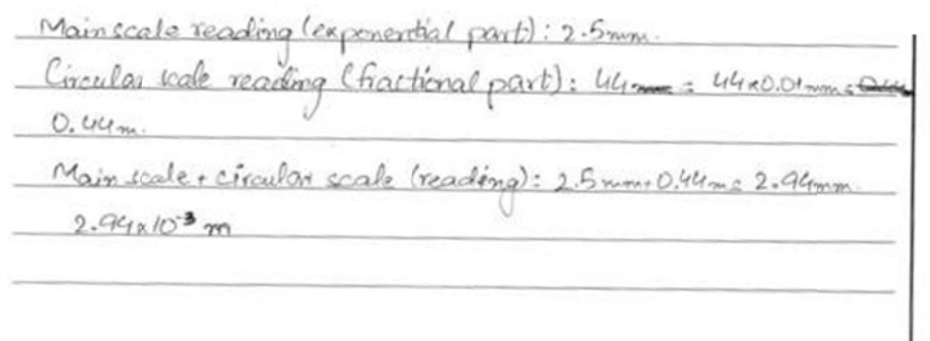 Main scale reading (exponential part): 2.5mm.
Circular scale reading (fractional part): 44 = 44x0.01mm =
0.44m.
Main scale + circular scale (reading): 2.5mm+0.44m= 2.94mm.
2.94x10⁻³ m